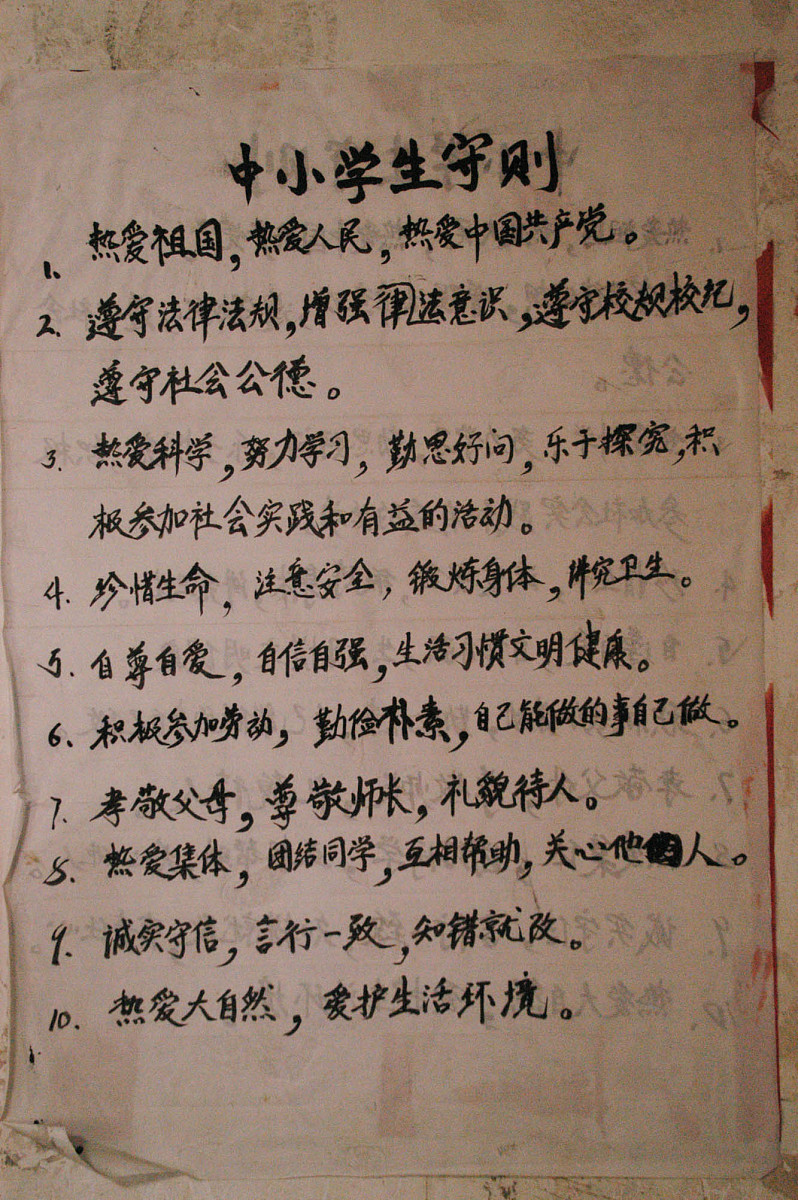 中小学生守则
1、热爱祖国,热爱人民,热爱中国共产党。
2、遵守法律法规,增强律法意识,遵守校规校纪,
遵守社会公德。
3、热爱科学,努力学习,勤思好问,乐于探究,积
极参加社会实践和有益的活动。
4、珍惜生命,注意安全,锻炼身体,讲究卫生。
5、自尊自爱,自信自强,生活习惯文明健康。
6、积极参加劳动,勤俭朴素,自己能做的事自己做。
7、孝敬父母,尊敬师长,礼貌待人。
8、热爱集体,团结同学,互相帮助,关心他人。
9、诚实守信,言行一致,知错就改。
10、热爱大自然,爱护生活环境。